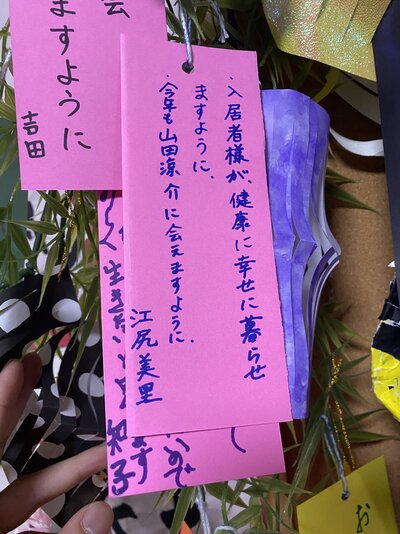 ・入居者様が、健康に幸せに暮らせ
ますように、
・今年も山田涼介に会えますように、
江尻美里
会
ますように
吉田
生き
和子
ので
ます
お